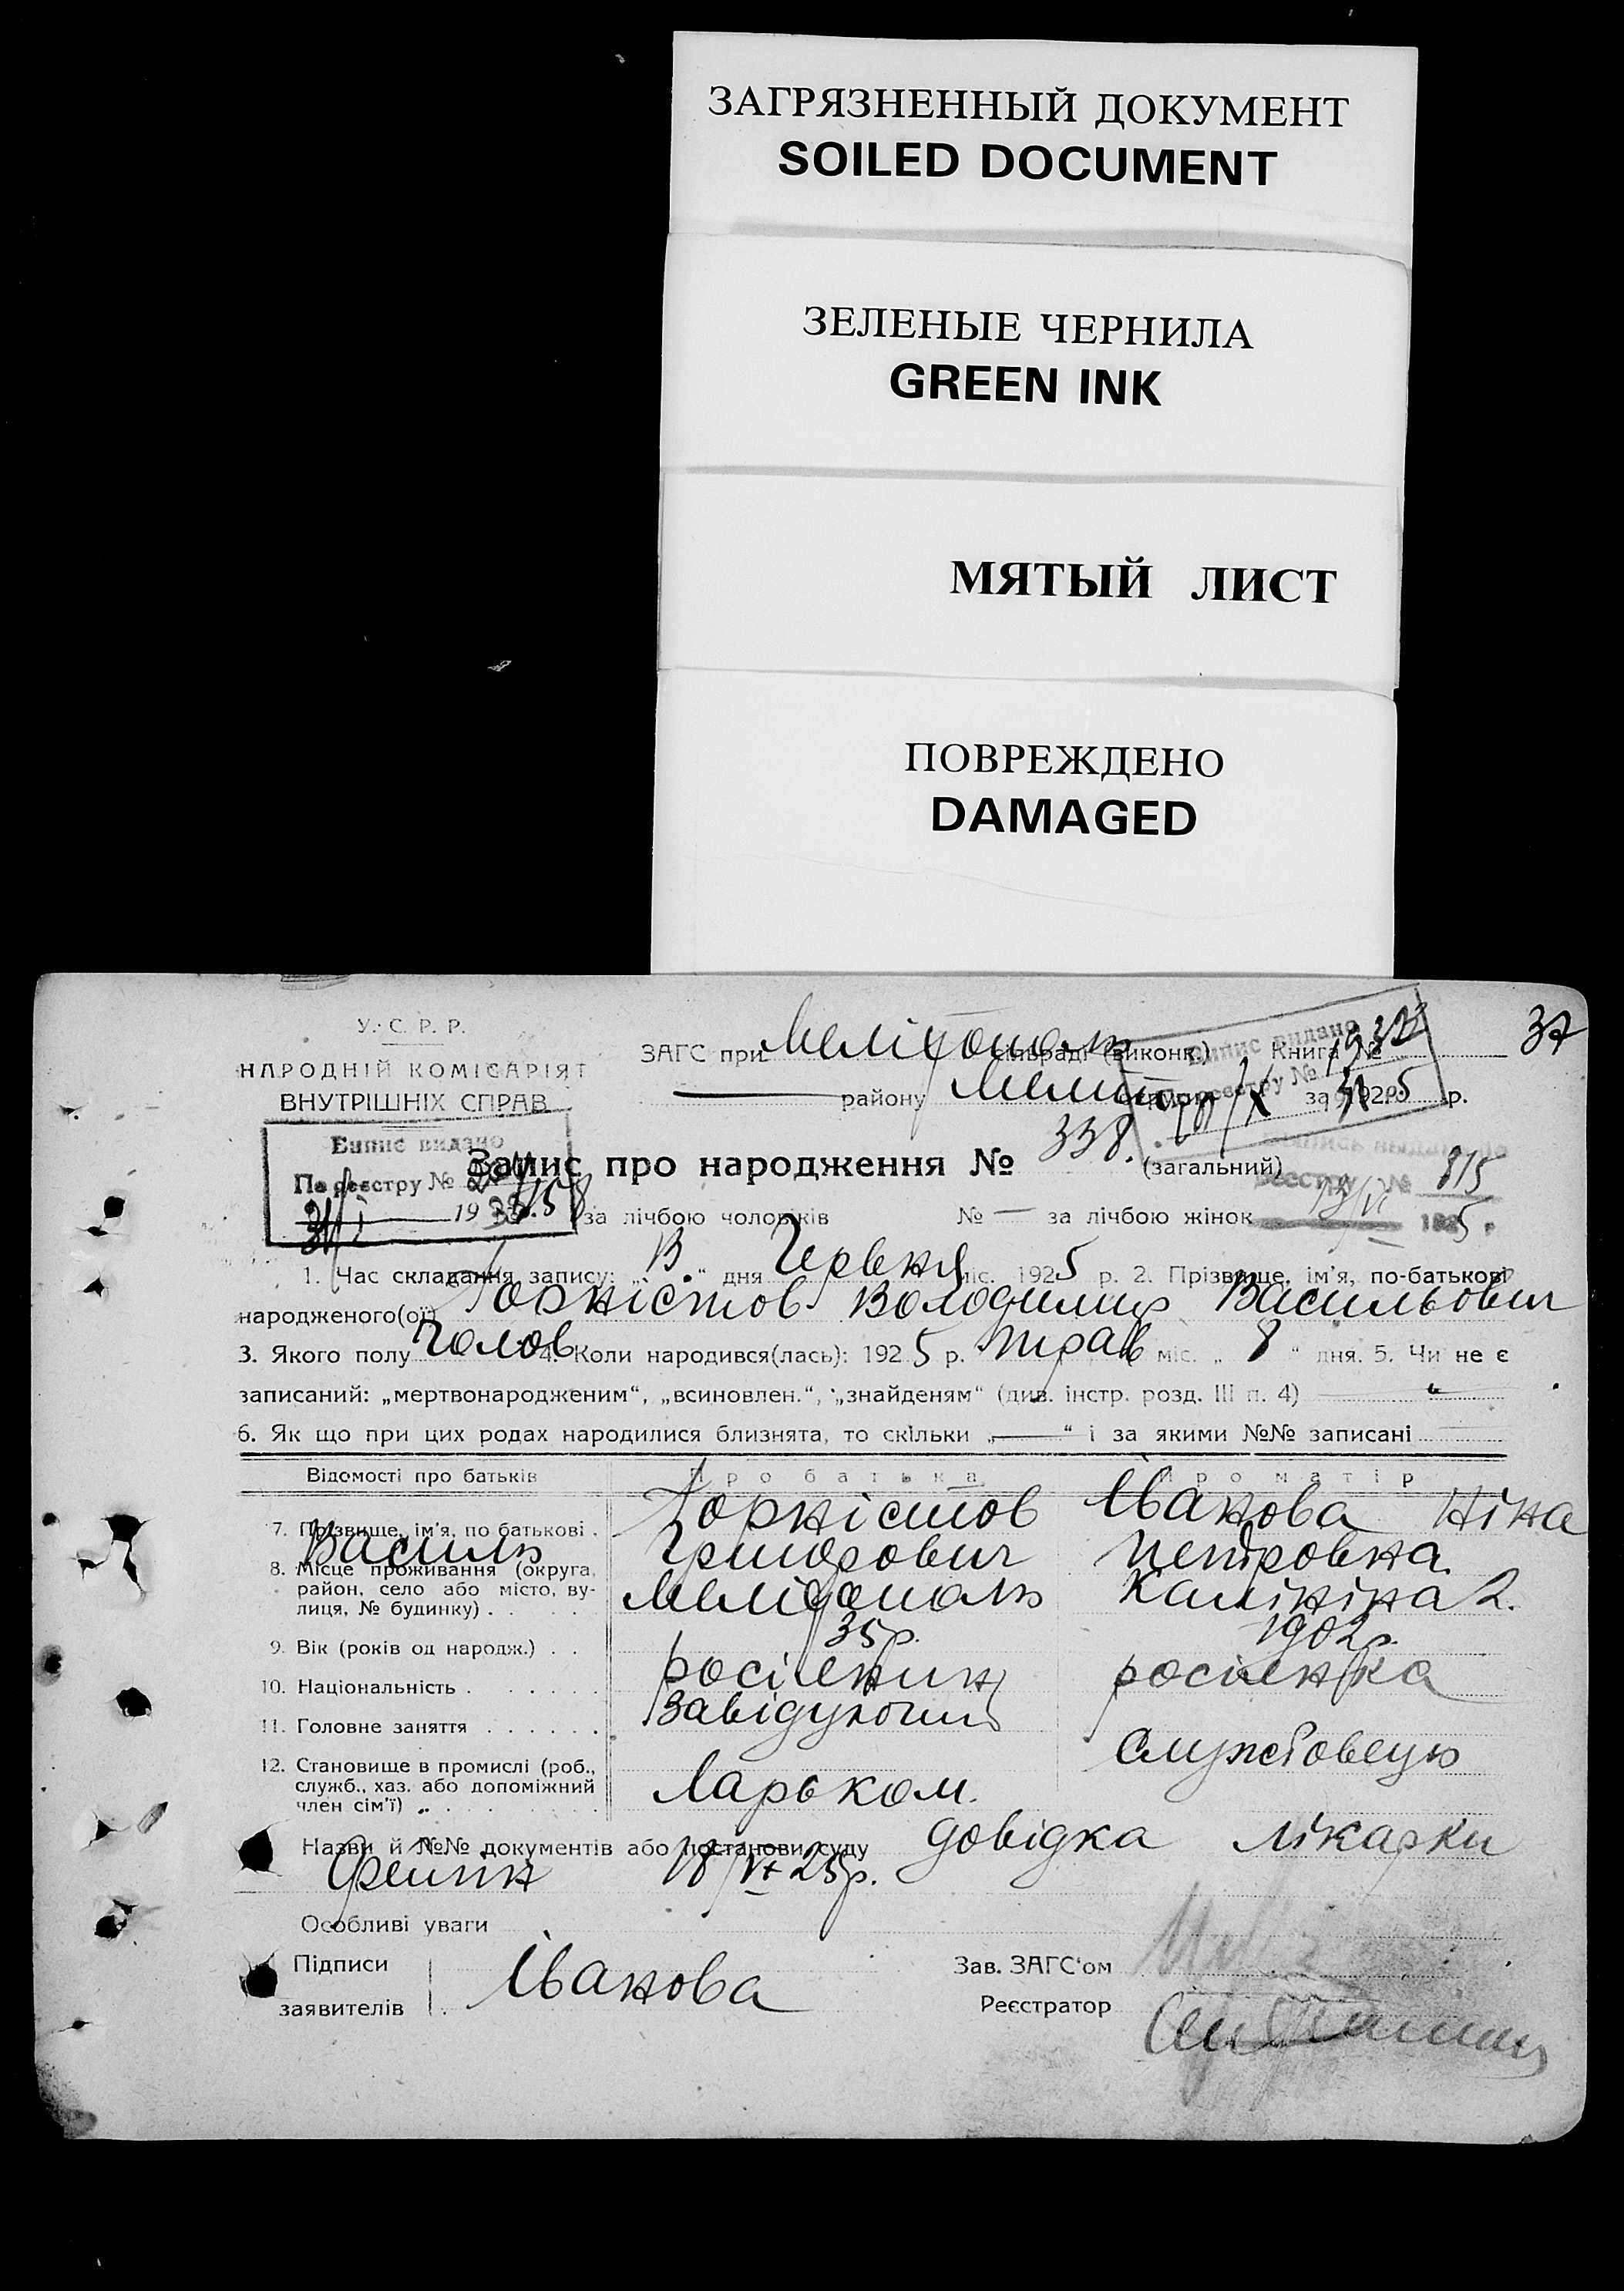 ЗАГРЯЗНЕННЫЙ ДОКУМЕНТ
SOILED DOCUMENT
ЗЕЛЕНЫЕ ЧЕРНИЛА
GREEN INK
МЯТЫЙ ЛИСТ
ПОВРЕЖДЕНО
DAMAGED
37
У. С. Р. Р.
НАРОДНІЙ КОМІСАРІЯТ
ВНУТРІШНІХ СПРАВ
ЗАГС при Мелітополь сільраді (виконк.) Книга №
району за 1925 р.
Випис видано
По реєстру №
Випис видано
По реєстру №
19
Запис про народження № 338. (загальний)
реестру № 815
1925 р
за лічбою чоловіків № — за лічбою жінок
1. Час складання запису: „ “ дня Червня міс. 1925 р. 2. Прізвище, ім'я, по-батькові
народженого(ої) Торністов Володимир Васильович
3. Якого полу Чолов 4. Коли народився(лась): 1925 р. трав міс. „ 8 “ дня. 5. Чи не є
записаний: „мертвонародженим“, „всиновлен.“, „знайденям“ (див. інстр. розд. III п. 4)
6. Як що при цих родах народилися близнята, то скільки „ — “ і за якими №№ записані
Відомості про батьків Про батька Про матір
7. Прізвище, ім'я, по батькові . Торністов Іванова Ніна
Василь Григорович Петровна
8. Місце проживання (округа,
район, село або місто, ву-
лиця, № будинку) . Мелітополь Калініна 2.
9. Вік (років од народж.) . . 35 р. 1902 р.
10. Національність . росіянин росіянка
11. Головне заняття . Завідуючий
12. Становище в промислі (роб.,
служб., хаз. або допоміжний
член сім'ї) . Ларьком. Службовець
Назви й №№ документів або постанови суду довідка лікарки
18/VI 25р.
Особливі уваги
Підписи
заявителів Іванова
Зав. ЗАГС'ом
Реєстратор